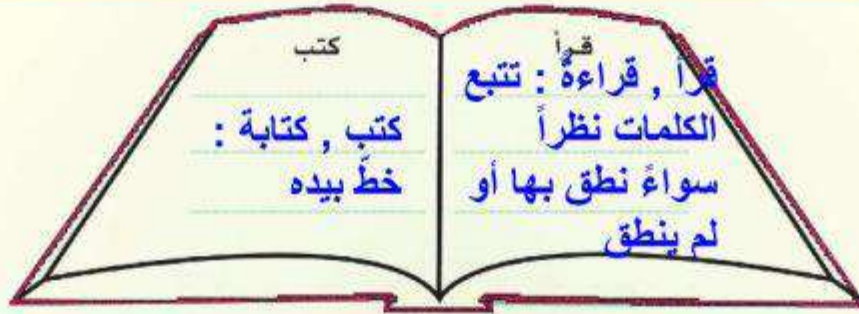 قرأ
قرأ , قراءةً : تتبع
الكلمات نظراً
سواءً نطق بها أو
لم ينطق
كتب
كتب , كتابة :
خطَّ بيده